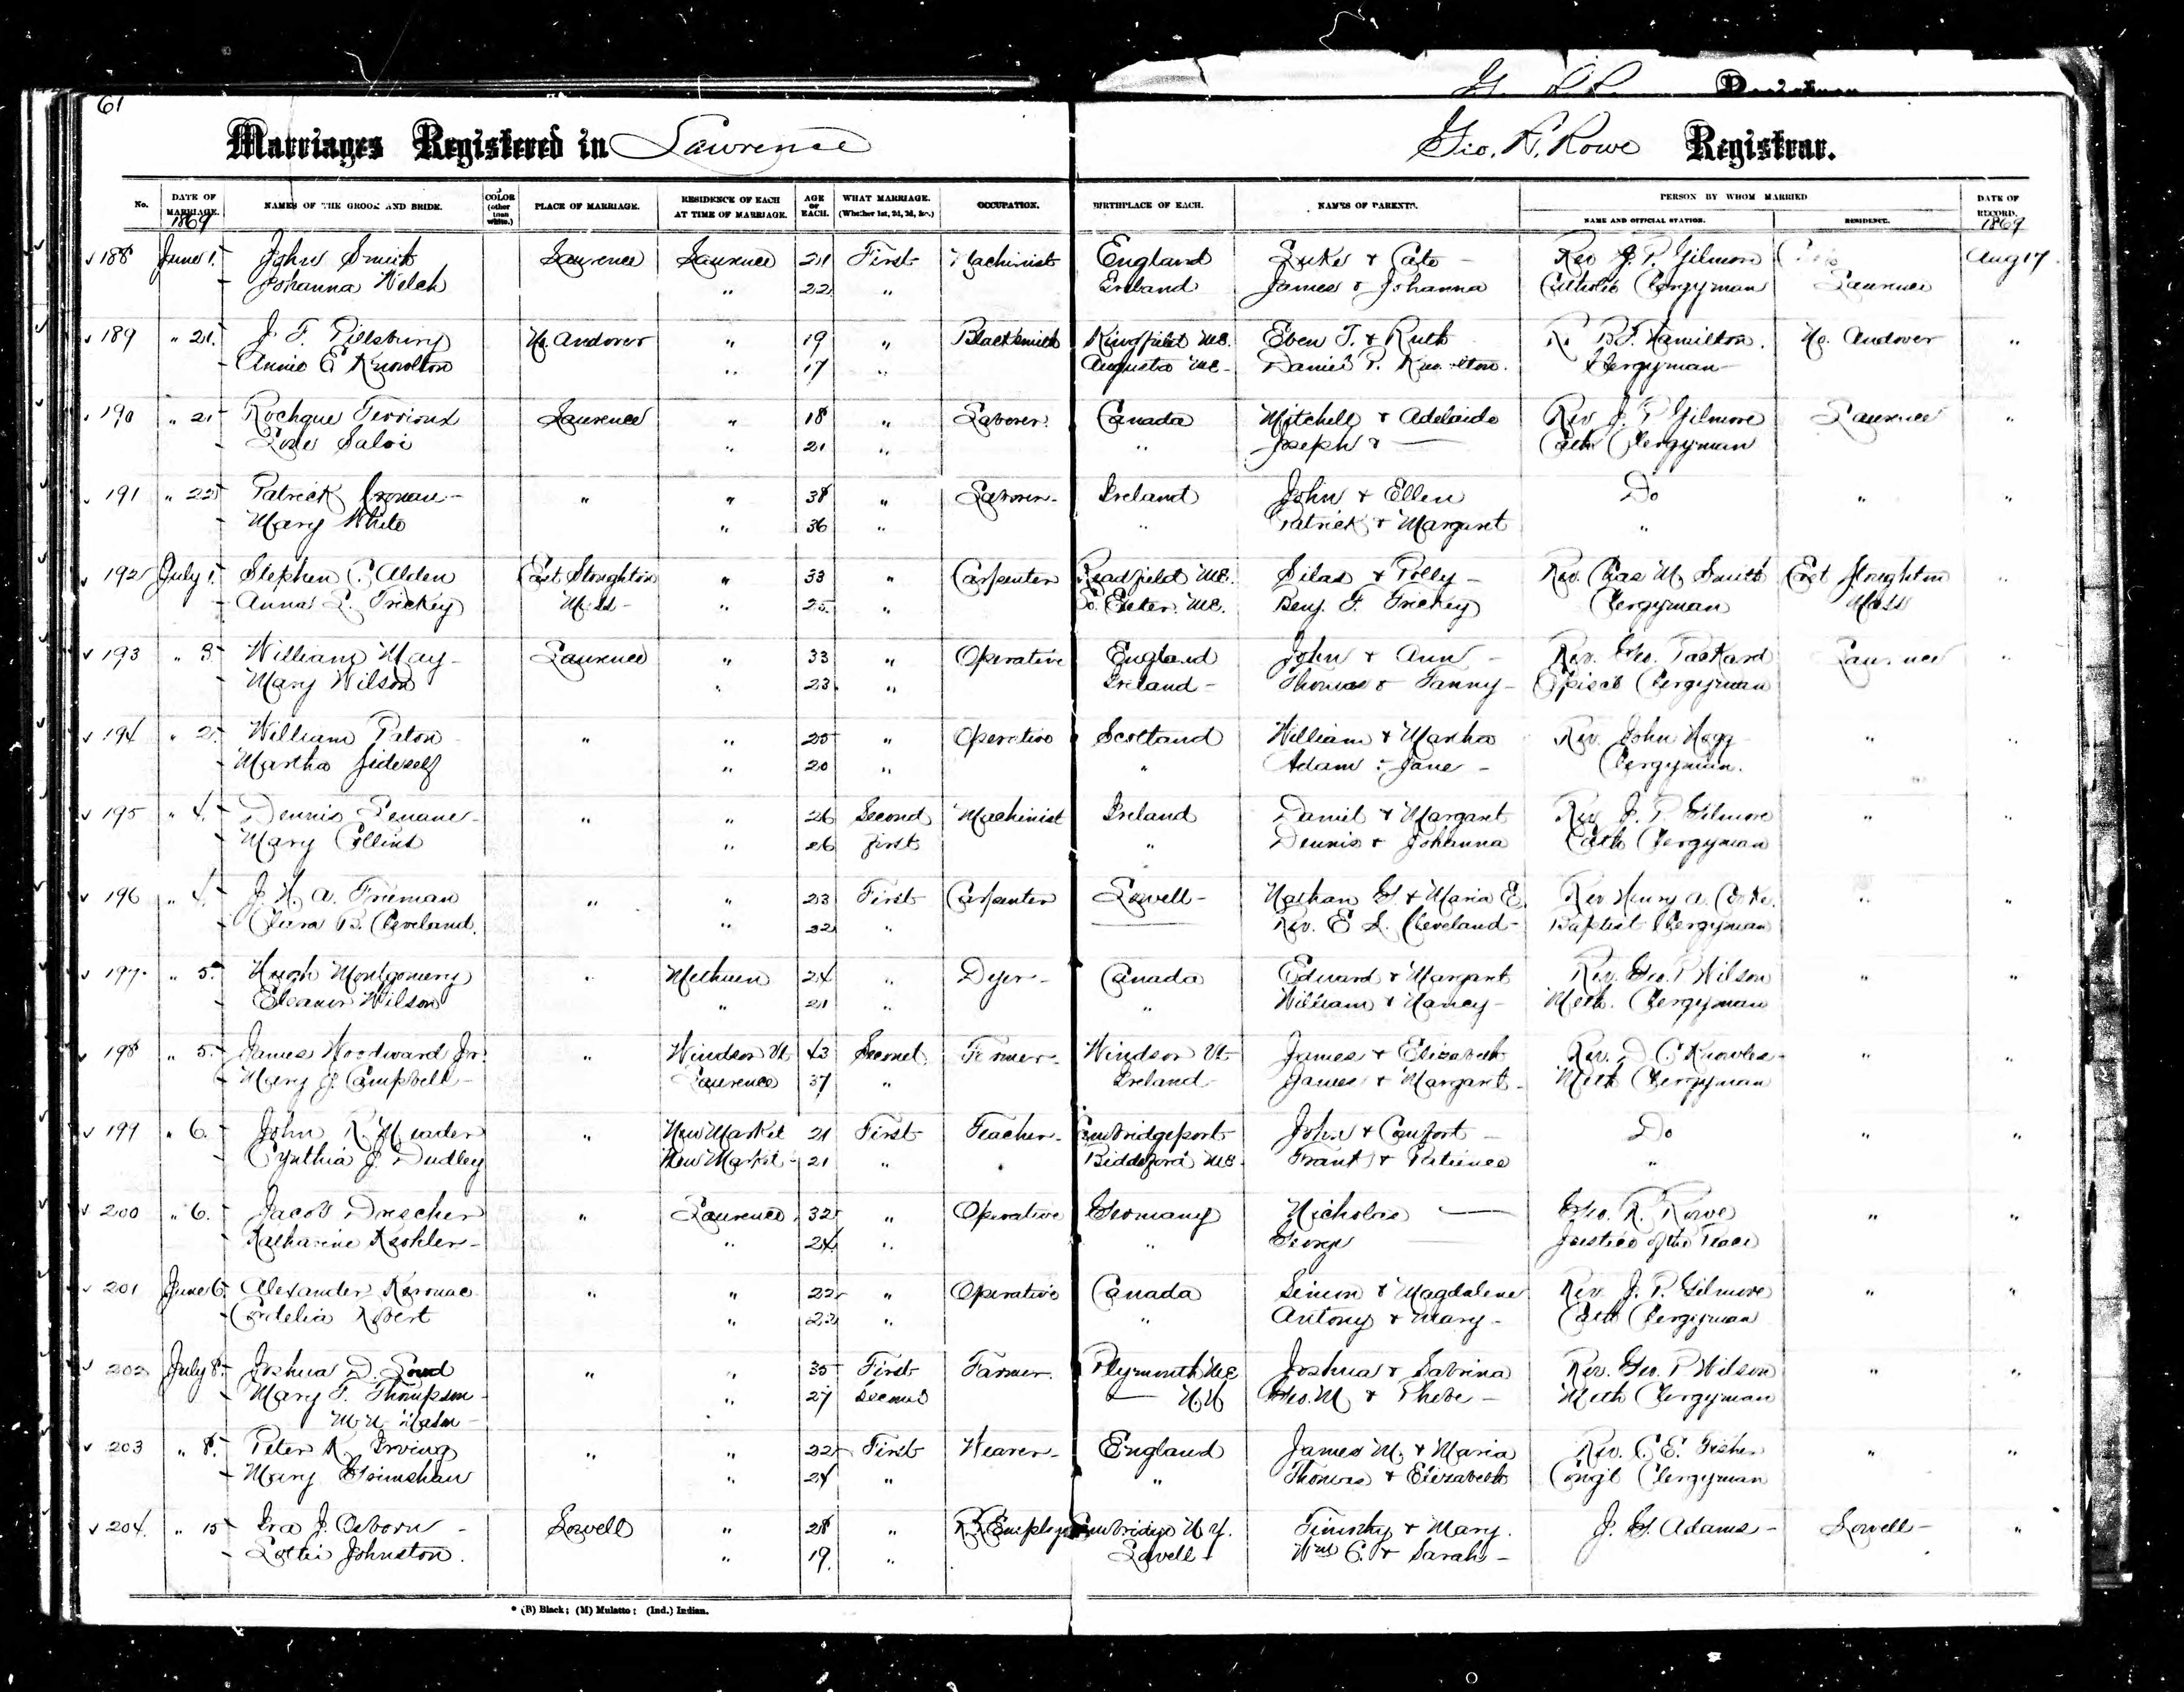 61
Marriages Registered in Lawrence
Geo. R. Rowe Registrar.
No. DATE OF MARRIAGE. 1869 NAMES OF THE GROOM AND BRIDE. COLOR (other than white.) PLACE OF MARRIAGE. RESIDENCE OF EACH AT TIME OF MARRIAGE. AGE OF EACH. WHAT MARRIAGE. (Whether 1st, 2d, 3d, &c.) OCCUPATION. BIRTHPLACE OF EACH. NAMES OF PARENTS. PERSON BY WHOM MARRIED NAME AND OFFICIAL STATION. RESIDENCE. DATE OF RECORD. 1869
188 June 1. John Smith Lawrence Lawrence 21 First Machinist England Luke & Cate Rev J. P. Gilmore Aug 17
Johanna Welch " 22 " Ireland James & Johanna Catholic Clergyman Lawrence
189 " 21. J. F. Pillsbury No. Andover " 19 " Blacksmith Kingfield Me. Eben T. & Ruth R. B. F. Hamilton. No. Andover "
Annie E Knowlton " 17 " Augusta Me. Daniel P. Knowlton. Clergyman
190 " 21 Rochque Terrioux Lawrence " 18 " Laborer. Canada Mitchell & Adelaide Rev J. P. Gilmore Lawrence "
" 21 " " Joseph & — Cath Clergyman
191 " 22 Patrick Cronan " " 38 " Laborer Ireland John & Ellen Do " "
Mary White " 36 " " Patrick & Margaret "
192 July 1. Stephen C. Alden East Stoughton " 33 " Carpenter Readfield Me. Silas & Polly Rev. Chas M. Smith East Stoughton "
Anna L. Trickey Mass " 25 " So. Exeter. Me. Benj. F. Trickey Clergyman Mass
193 " 3 William May Lawrence " 33 " Operative England John & Ann Rev. Geo. Packard Lawrence "
Mary Wilson " 23 " Ireland Thomas & Fanny Episco Clergyman
194 " 2 William Paton " " 25 " Operative Scotland William & Martha Rev. John Hogg " "
Martha " 20 " " Adam & Jane Clergyman.
195 " 4. Dennis " " 26 Second Machinist Ireland Daniel & Margaret Rev J. P. Gilmore " "
Mary Collins " 26 First " Dennis & Johanna Cath Clergyman
196 " 4. J. H. A. Freeman " " 23 First Carpenter Lowell Nathan G. & Maria E. Rev Henry A. Cooke. " "
Clara B. Cleveland. " 22 " — Rev. E. S. Cleveland Baptist Clergyman
197 " 5. Hugh Montgomery " Methuen 24 " Dyer Canada Edward & Margaret Rev. Geo. P. Wilson " "
Eleanor Wilson " 21 " " William & Nancy Meth. Clergyman
198 " 5. James Woodward Jr. " Windsor Vt 43 Second Farmer Windsor Vt James & Elizabeth Rev. D. C. Knowles " "
Mary J. Campbell Lawrence 37 " Ireland James & Margaret Meth Clergyman
199 " 6. John R. Meader " New Market 21 First Teacher Cambridgeport John & Comfort Do " "
Cynthia J. Dudley New Market 21 " Biddeford Me. Frank & Patience "
200 " 6. Jacob Drescher " Lawrence 32 " Operative Germany Nicholas — Geo. R. Rowe " "
Katharine Koehler " 24 " " George — Justice of the Peace
201 June 6. Alexander " " 22 " Operative Canada Simon & Magdalene Rev J. P. Gilmore " "
Cordelia Robert " 22 " " Antony & Mary Cath Clergyman
202 July 8. Joshua D. Loud " " 35 First Farmer. Plymouth Me Joshua & Sabrina Rev. Geo. P. Wilson " "
Mary F. Thompson " 27 Second — N H Geo. M. & Phebe Meth Clergyman
203 " 8. Peter R. Irving " " 22 First Weaver England James M. & Maria Rev. C. E. Fisher " "
Mary Grimshaw " 24 " " Thomas & Elizabeth Congl Clergyman
204. " 15 Ira J. Osborn Lowell " 28 " R. R. Employe Cambridge N. Y. Timothy & Mary. J. G. Adams Lowell "
Lottie Johnston. " 19. " Lowell Wm C. & Sarah
* (B) Black; (M) Mulatto; (Ind.) Indian.